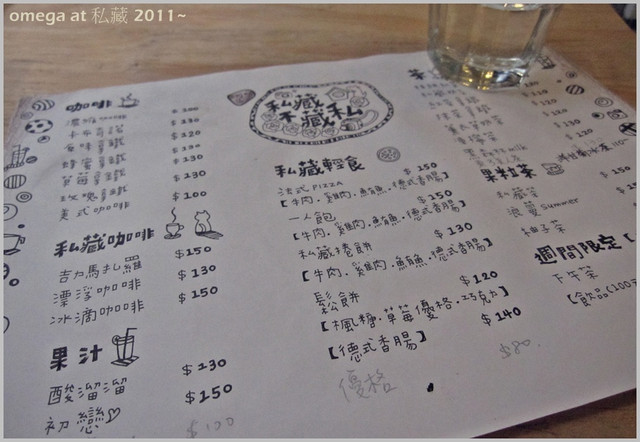 omega at 私藏 2011~
咖啡
$100
$130
卡布奇諾 $120
原味拿鐵 $130
蜂蜜拿鐵 $130
$130
玫瑰拿鐵 $100
美式咖啡
私藏咖啡
吉力馬札羅 $150
漂浮咖啡 $130
冰滴咖啡 $150
果汁
酸溜溜 $130
初戀♡ $150
$100
私藏
不藏私
私藏輕食
法式PIZZA $150
【牛肉．雞肉．鮪魚．德式香腸】
一人飽 $150
【牛肉．雞肉．鮪魚．德式香腸】
私藏捲餅 $130
【牛肉．雞肉．鮪魚．德式香腸】
鬆餅 $120
【楓糖．草莓優格．巧克力】
【德式香腸】 $140
優格 $80.
茶
$130
$150
果粒茶
浪蔓 Summer
柚子茶
週間限定【
下午茶
【飲品(100元